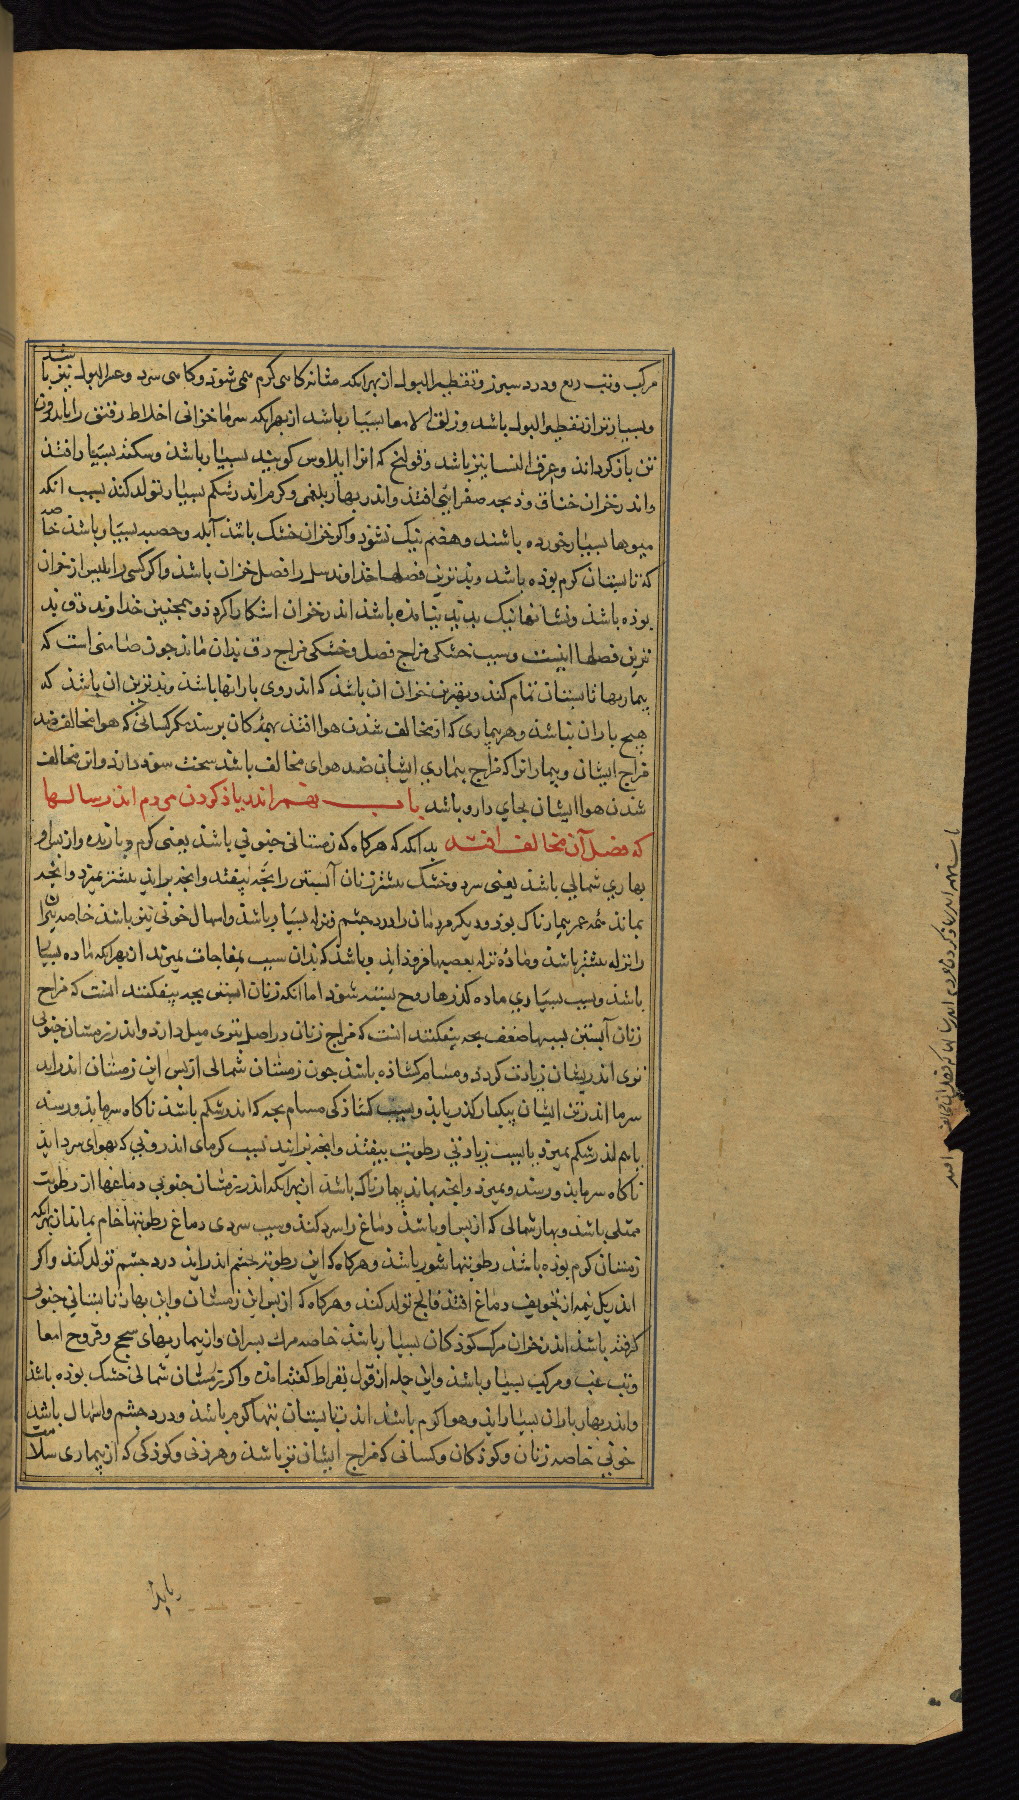 مرکب وتب ربع ودرد سپرز وتقطیر البول از بهر انکه مثانه کاهی کرم می شوذ وکاهی سرد وعسر البول نیز باشد
وبسیارتر از تقطیر البول باشد وزلق الامعا بسیار باشد از بهر انکه سرما خزانی اخلاط رقیق را باندرون
تن باز کرداند وعرق النسا نیز باشد وقولنج که انرا ایلاوس کویند بسیار باشد وسکته بسیار افتذ
واندر خزان خناق وذبحه صفرایی افتذ واندر بهار بلغمی وکرم اندر شکم بسیار تولد کند بسبب انکه
میوها بسیار خورده باشند وهضم نیک نشوذ واکر خزان خشک باشذ آبله وحصبه بسیار باشذ خاصه
که تابستان کرم بوذه باشد وبذترین فصلها خذاوند سل را فصل خزان باشذ واکر کسی را سل پیش از خزان
بوذه باشذ ونشانها نیک بدید نیامذه باشذ اندر خزان اشکارا کردذ وهمچنین خذاوند دق بذ
ترین فصلها اینست وسبب خشکی مزاج فصل وخشکی مزاج دق بذان ماند چون ضامنی است که
بیماریها تابستان تمام کند وبهترین خزان ان باشذ که اندر وی بارانها باشذ وبذترین ان باشذ که
هیچ باران نباشذ وهر بیماری که از مخالف شذن هوا افتذ بهمکان برسد مکر کسانی که هوا مخالف ضد
مزاج ایشان وبیمارانرا که مزاج بیماری ایشان ضد هوای مخالف باشد سخت سوذ دارد واثر مخالف
شذن هوا ایشان بجای دارو باشد باب نهم اندر یاذ کردن مردم اندر سالها
که فصل آن مخالف افتد بدانکه هرکاه که زمستانی جنوبی باشذ یعنی کرم وبارنده واز پس او
بهاری شمالی باشذ یعنی سرد وخشک بیشتر زنان آبستن را بچه بیفتد وانچه بزاید بیشتر بمیرد وانچه
بماند همه عمر بیمارناک بوذ ودیکر مردمان را درد چشم ونزله بسیار باشذ واسهال خونی نیز باشذ خاصه پیران
را نزله بیشتر باشذ وماده نزله بعصبها فروذ اید وباشذ که بذان سبب بمفاجات بمیرند از بهر انکه ماده بسیار
باشذ وبسبب بسیاری ماده کذرها روح بسته شوذ اما انکه زنان آبستن بچه بیفکنند انست که مزاج
زنان آبستن بسببها ضعف بچه بیفکنند انست که مزاج زنان در اصل بتری میل دارد واندر زمستان جنوبی
تری اندر ایشان زیادت کردذ ومسام کشاذه باشذ چون زمستان شمالی از پس این زمستان اندر اید
سرما اندر تن ایشان بیکبار کذر یابذ وبسبب کشاذکی مسام بچه که اندر شکم باشذ ناکاه سرما بذو رسد
یا هم اندر شکم بمیرد یا بسبب زیادتی رطوبت بیفتذ وانچه بزایند بسبب کرمای اندرونی که بهوای سرد اید
ناکاه سرما بذو رسد وبمیرد وانچه بماند بیمارناک باشذ از بهر انکه اندر زمستان جنوبی دماغها از رطوبت
ممتلی باشذ وبهار شمالی که از پس او باشذ دماغ را سرد کند وبسبب سردی دماغ رطوبتها خام بماند از بهر انکه
زمستان کرم بوذه باشذ رطوبتها شور باشذ وهرکاه که این رطوبت بچشم اندر اید درد چشم تولد کند واکر
اندر یک نیمه از تجویف دماغ افتذ فالج تولد کند وهرکاه که از پس این زمستان واین بهار تابستانی جنوبی
کرفته باشذ اندر خزان مرک کوذکان بسیار باشذ خاصه مرک پسران واز بیماریهای سحج وقروح امعا
وتب غب ومرکب بسیار باشذ واین جمله از قول بقراط کفته امذ واکر زمستان شمالی خشک بوذه باشذ
واندر بهار باران بسیار ایذ وهوا کرم باشذ اندر تابستان تبها کرم باشذ ودرد چشم واسهال باشد
خونی خاصه زنان وکوذکان وکسانی که مزاج ایشان تر باشذ وهر زنی وکوذکی که از بیماری سلامت
یابذ
باب نهم اندر یاذ کردن مردم اندر سالها که فصل آن مخالف افتد